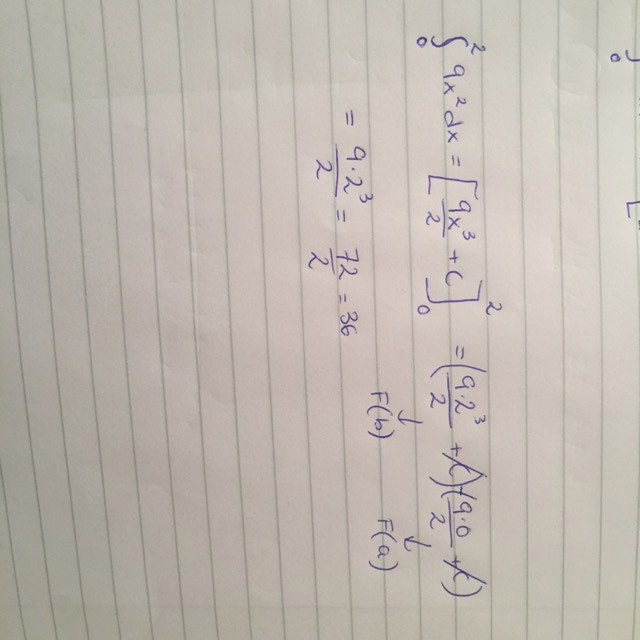 ∫₀² 9x²dx = [9x³/2 + C]₀² = (9·2³/2 + C)(9·0/2 + C)
↓ F(b) ↓ F(a)
= 9·2³/2 = 72/2 = 36